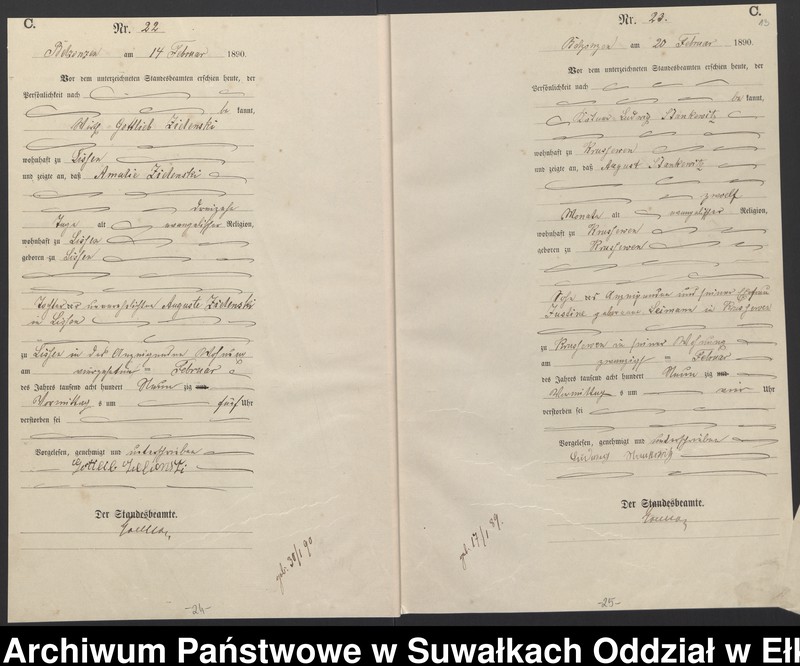 C.
Nr. 22
am 14 Februar 1890.
Vor dem unterzeichneten Standesbeamten erschien heute, der
Persönlichkeit nach
be kannt,
Gottlieb Zielenski
wohnhaft zu Lissen
und zeigte an, daß Amalie Zielenski
dreizehn
Tage alt evangelischer Religion,
wohnhaft zu Lissen
geboren zu Lissen
Tochter der unverehelichten Auguste Zielenski
in Lissen
zu Lissen in des Anzeigenden Wohnung
am vierzehnten Februar
des Jahres tausend acht hundert Neun zig
Vormittag s um fünf Uhr
verstorben sei
Vorgelesen, genehmigt und unterschrieben
Gottlieb Zielenski
Der Standesbeamte.
geb. 30/1 90
-24-
C.
Nr. 23.
am 20 Februar 1890.
Vor dem unterzeichneten Standesbeamten erschien heute, der
Persönlichkeit nach
be kannt,
Ludwig Stankewitz
wohnhaft zu Krussewen
und zeigte an, daß August Stankewitz
zwölf
Monate alt evangelischer Religion,
wohnhaft zu Krussewen
geboren zu Krussewen
Sohn des Anzeigenden und seiner Ehefrau
Justine geborener in Krussewen
zu Krussewen in seiner Wohnung
am zwanzigsten Februar
des Jahres tausend acht hundert Neun zig
Vormittag s um vier Uhr
verstorben sei
Vorgelesen, genehmigt und unterschrieben
Ludwig
Der Standesbeamte.
geb. 17/1 89.
-25-
Archiwum Państwowe w Suwałkach Oddział w Ełk